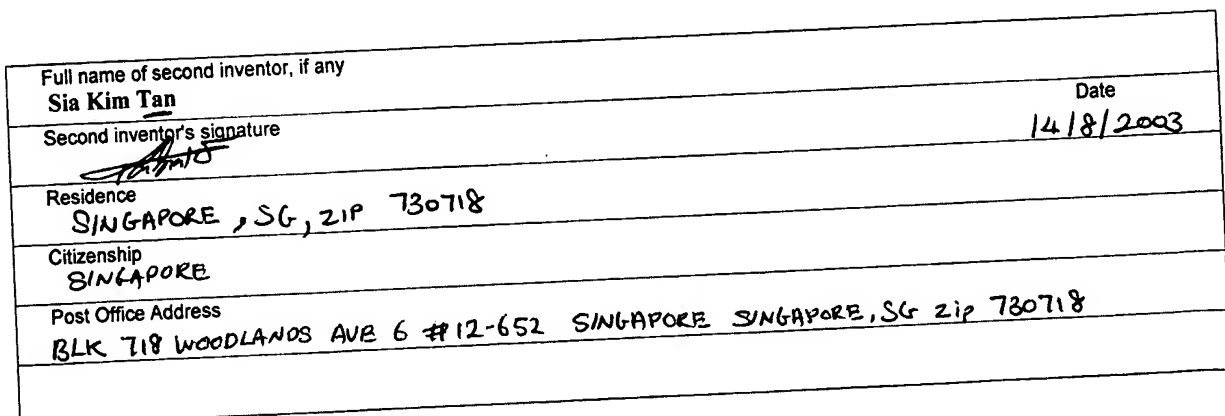 Full name of second inventor, if any
Sia Kim Tan
Second inventor's signature
Date
14/8/2003
Residence
SINGAPORE, SG, ZIP 730718
Citizenship
SINGAPORE
Post Office Address
BLK 718 WOODLANDS AVE 6 #12-652 SINGAPORE SINGAPORE, SG zip 730718